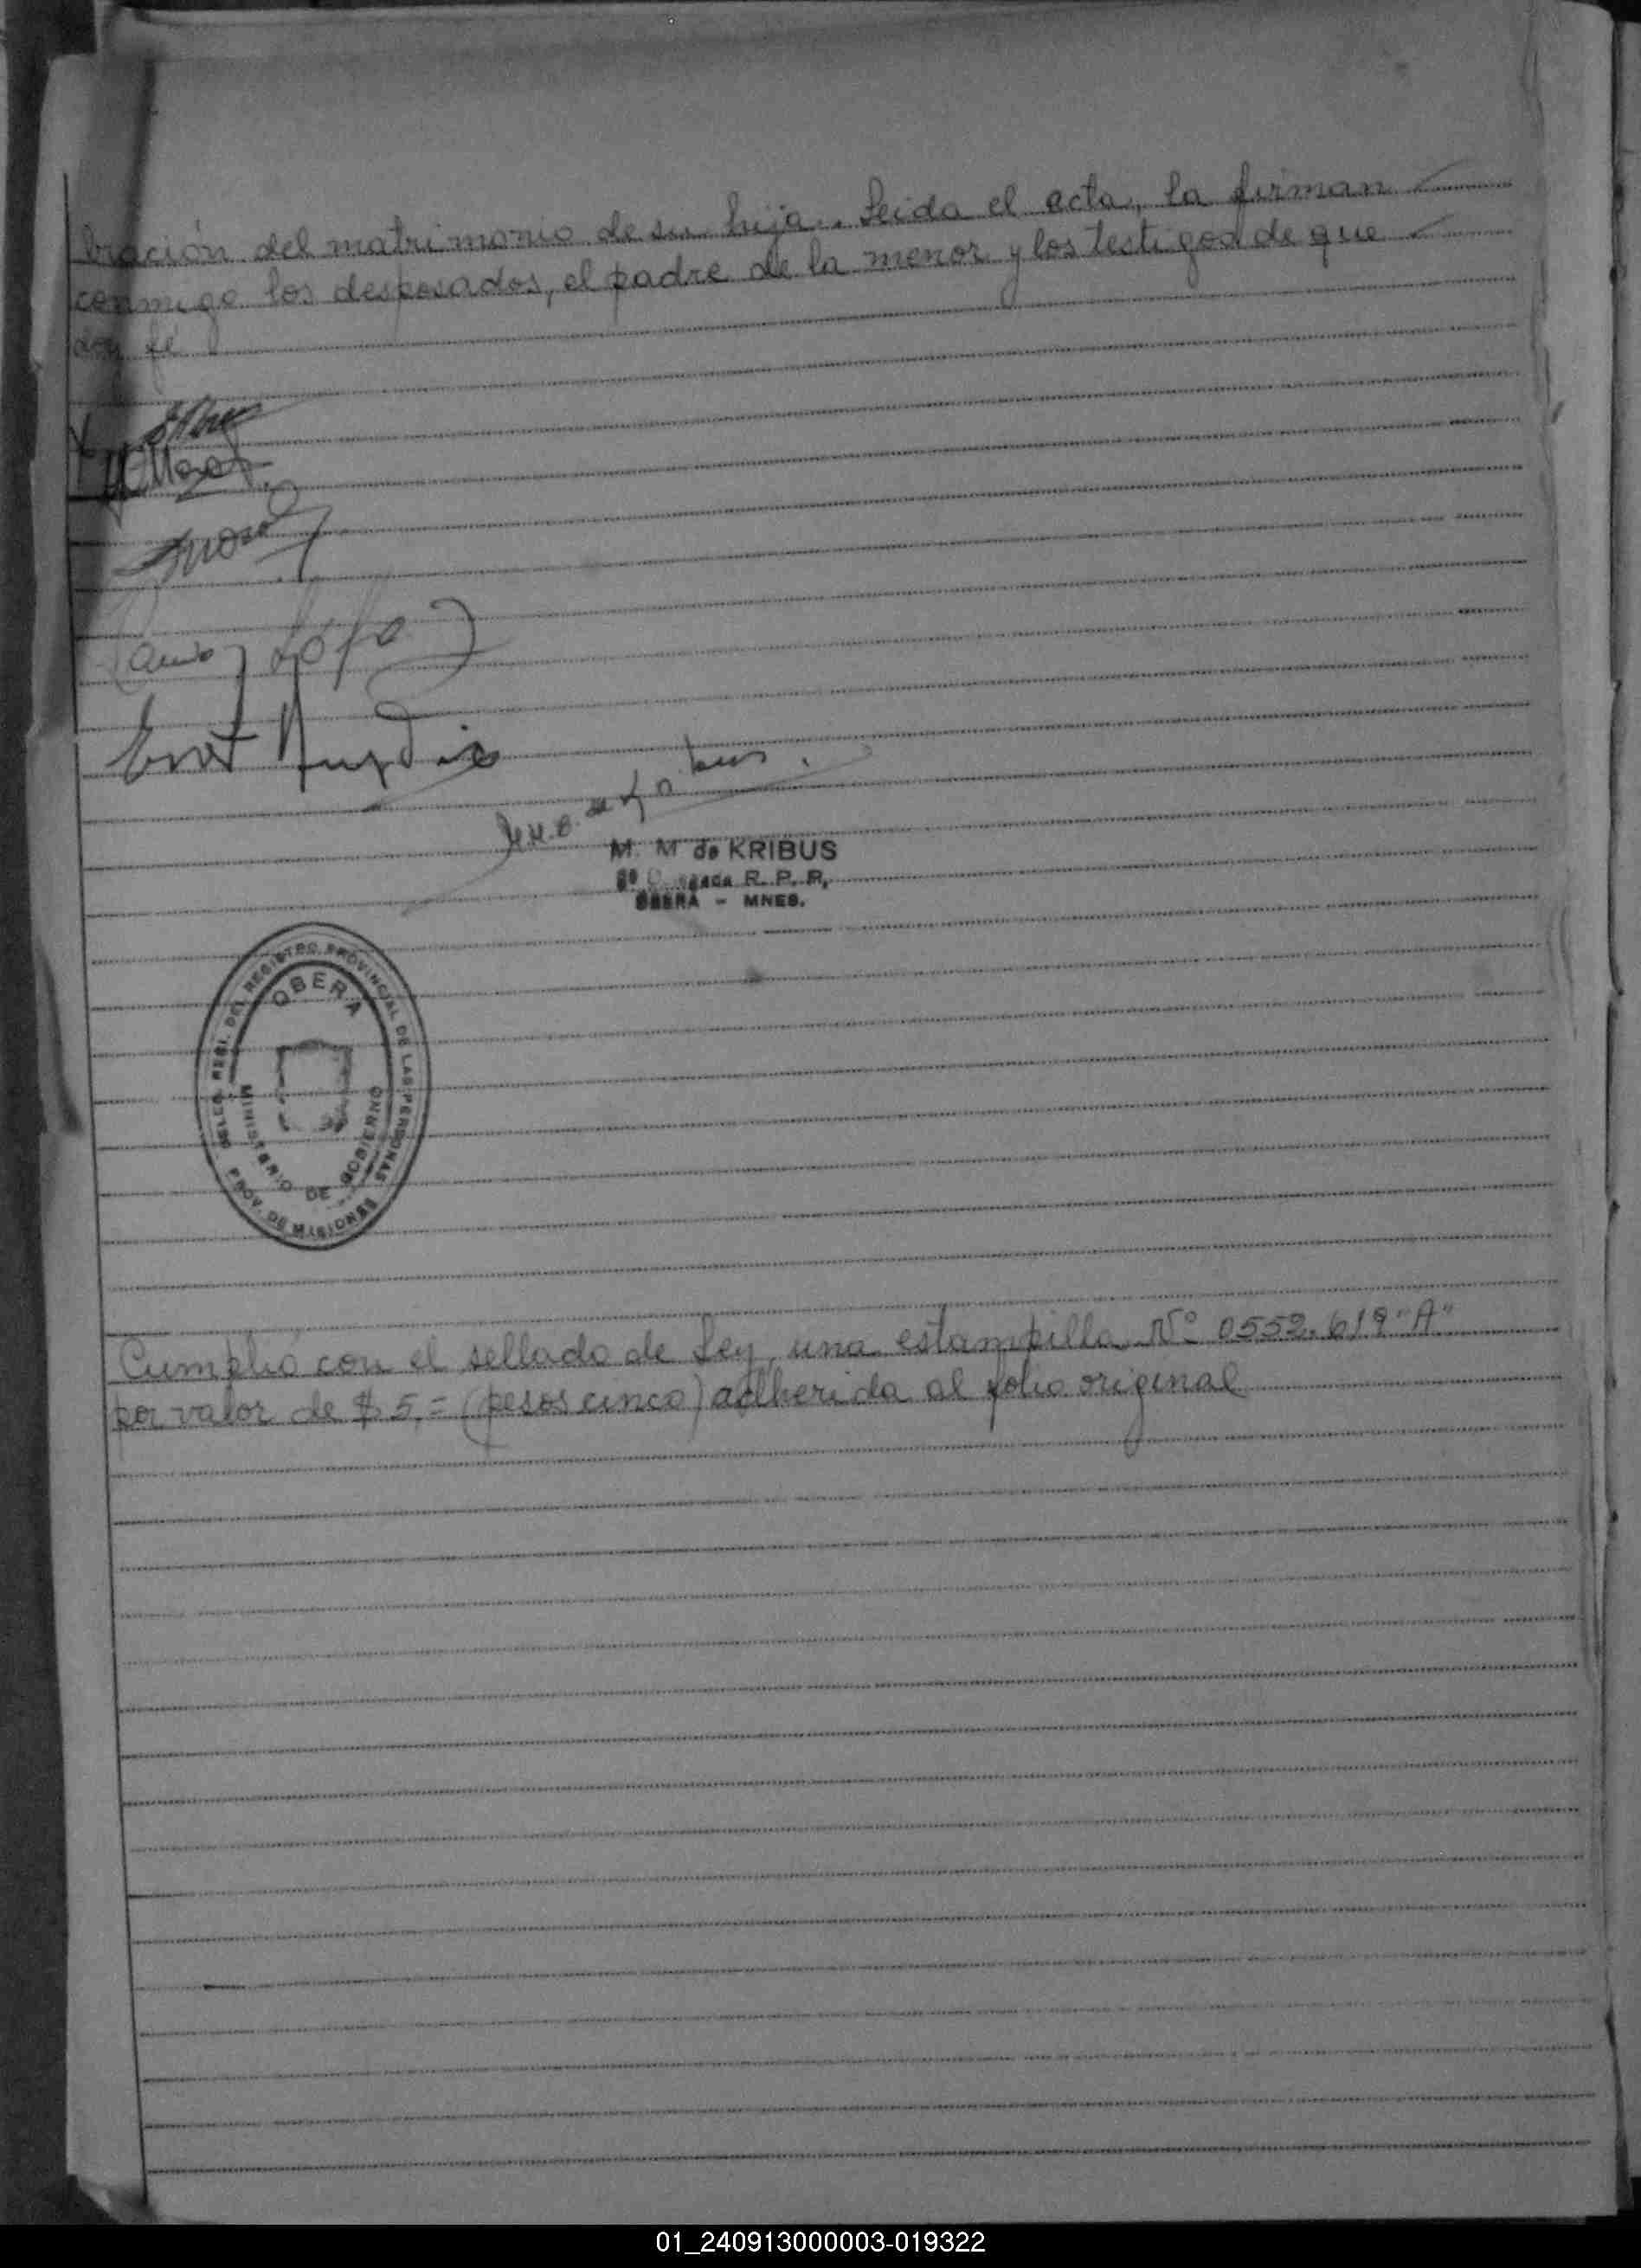 bración del matrimonio de su hija. Leida el acta, la firman
conmigo los desposados, el padre de la menor y los testigos de que
doy fé
M. M de KRIBUS
R. P. P,
OBERA - MNES.
DELEG. REGL. DEL REGISTRO PROVINCIAL DE LAS PERSONAS
OBERA
MINISTERIO DE GOBIERNO
PROV. DE MISIONES
Cumplió con el sellado de Ley, una estampilla Nº 0552.619 "A"
por valor de $ 5,= (pesos cinco) adherida al folio original
01_240913000003-019322